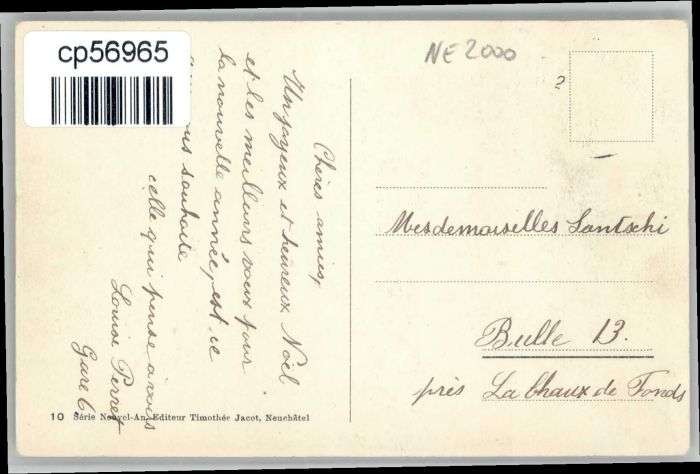 cp56965
NE 2000
?
Chères amies,
Un joyeux et heureux Noël
et les meilleurs vœux pour
la nouvelle année, est ce
vous souhaite
celle qui pense à vous
Louise Perret
Gare 6
Mesdemoiselles Santschi
Bulle 13.
près La Chaux de Fonds
10 Série Nouvel-An, Editeur Timothée Jacot, Neuchâtel